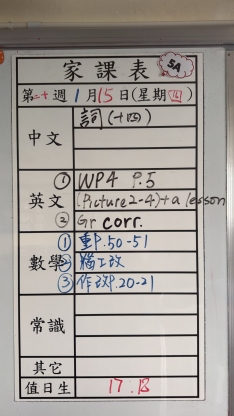 家課表
5A
第二十週 1月15日(星期四)
中文
詞(十四)
英文
① WP4 P.5
(Picture 2-4)+a lesson
② Gr corr.
數學
① 重P.50-51
②
③ 作改P.20-21
常識
其它
值日生
17, 18